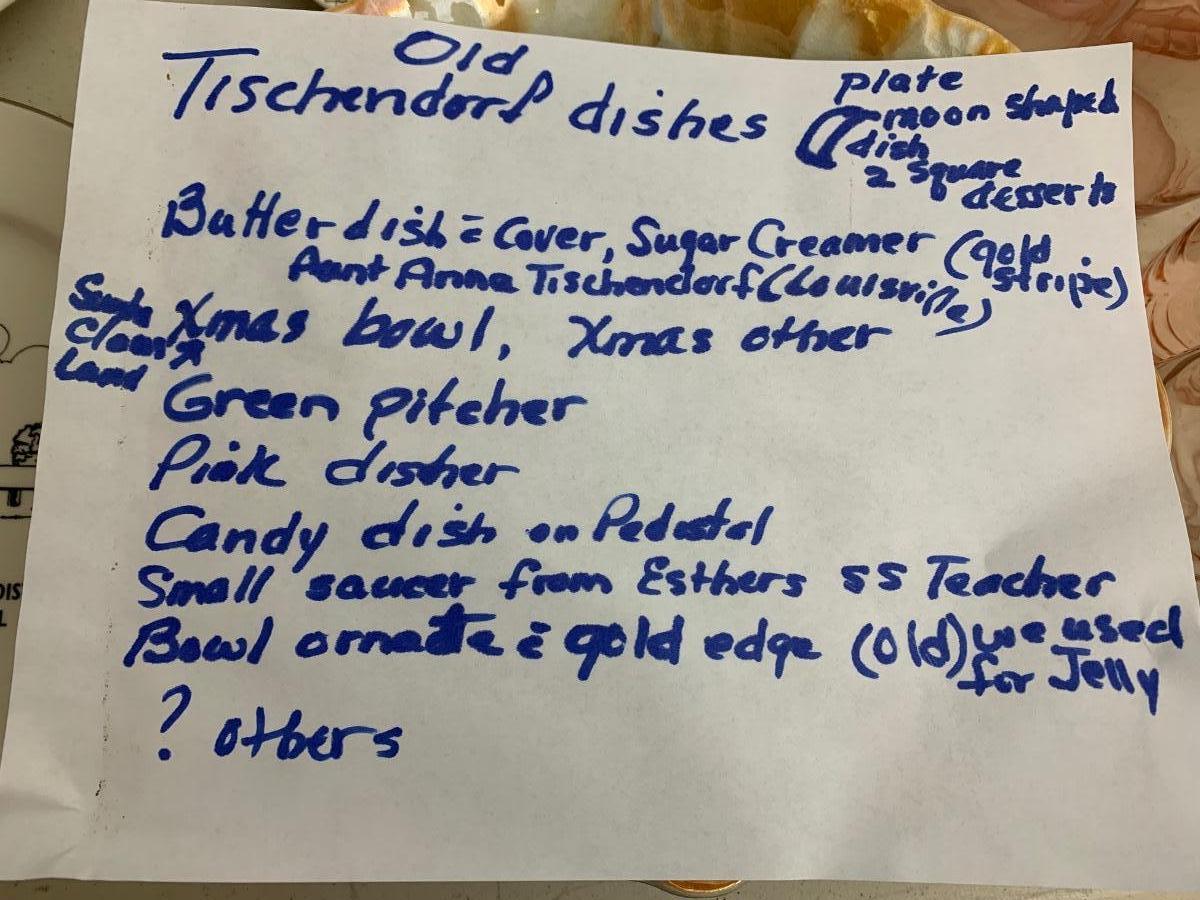 Old
Tischendorf dishes
plate
moon shaped
dish
2 square
desserts
Butter dish c̄ Cover, Sugar Creamer (gold
stripe)
Aunt Anna Tischendorf (Louisville)
Santa
Claus
Land
Xmas bowl, Xmas other
Green pitcher
Pink disher
Candy dish on Pedestal
Small saucer from Esthers SS Teacher
Bowl ornate c̄ gold edge (old) we used
for Jelly
? others
DIS
L